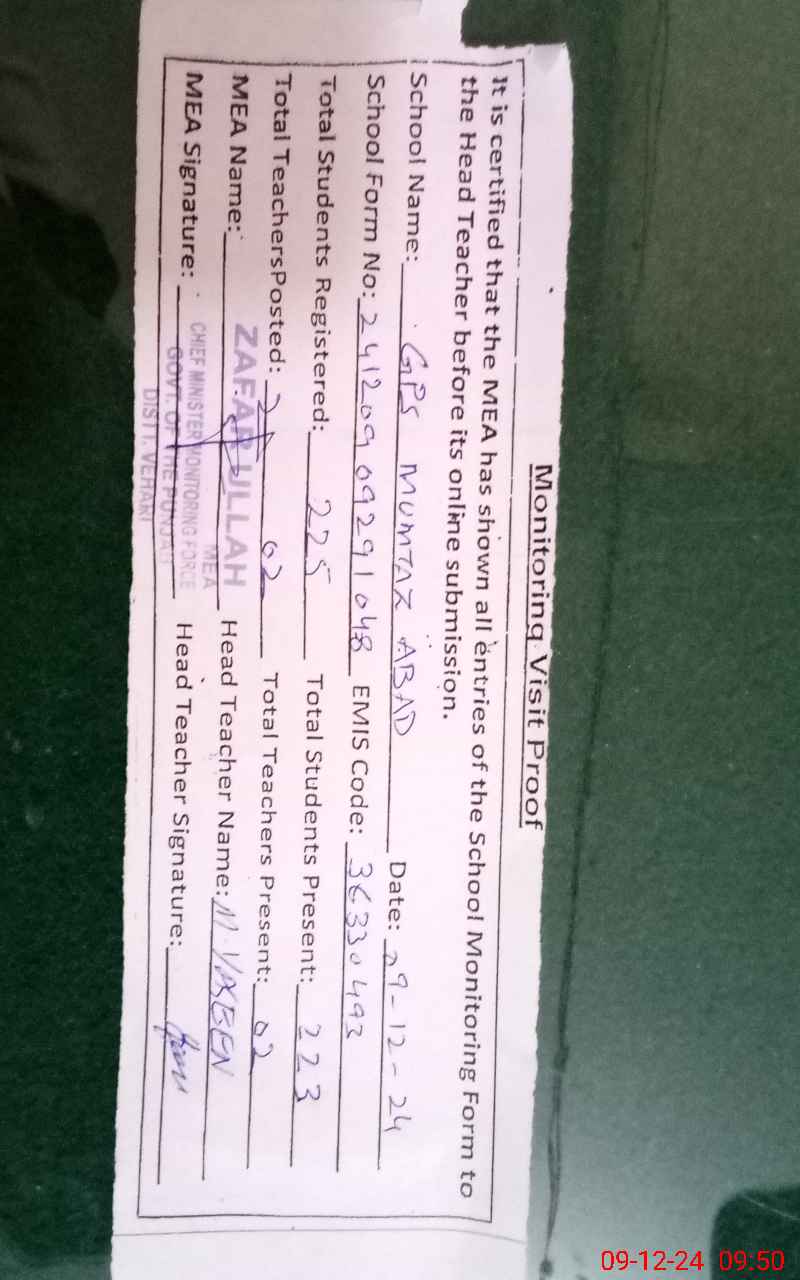 Monitoring Visit Proof
It is certified that the MEA has shown all entries of the School Monitoring Form to
the Head Teacher before its online submission.
School Name: GPS MUMTAZ ABAD Date: 09-12-24
School Form No: 24120909291048 EMIS Code: 36330493
Total Students Registered: 225 Total Students Present: 223
Total TeachersPosted: 02 Total Teachers Present: 02
MEA Name: ZAFAR ULLAH Head Teacher Name: M. YASEEN
MEA
MEA Signature: Head Teacher Signature:
CHIEF MINISTER MONITORING FORCE
GOVT. OF THE PUNJAB
DISTT. VEHARI
09-12-24 09:50